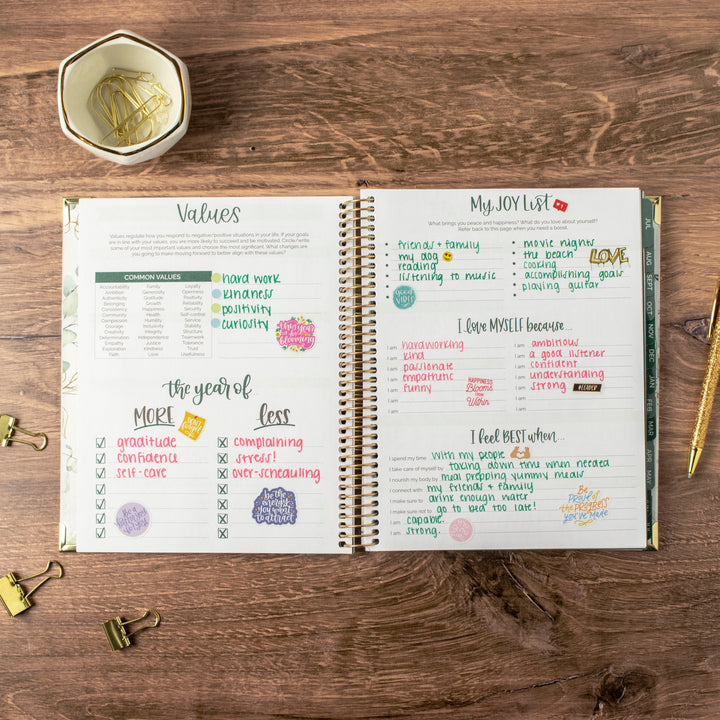 Values
Values regulate how you respond to negative/positive situations in your life. If your goals
are in line with your values, you are more likely to succeed and be motivated. Circle/write
some of your most important values and choose the most significant. What changes are
you going to make moving forward to better align with these values?
COMMON VALUES
Accountability Family Loyalty
Ambition Generosity Openness
Authenticity Gratitude Positivity
Belonging Growth Reliability
Consistency Happiness Respect
Community Health Security
Compassion Humility Self-control
Courage Humor Service
Creativity Inclusivity Stability
Determination Integrity Structure
Empathy Independence Teamwork
Equality Justice Tolerance
Exploration Kindness Trust
Faith Love Usefulness
hard work
kindness
positivity
curiosity
the year of...
MORE
less
gratitude
confidence
self-care
complaining
stress!
over-scheduling
be the
energy
you want
to attract
My JOY LIST
#1
What brings you peace and happiness? What do you love about yourself?
Refer back to this page when you need a boost.
friends + family
my dog
reading
listening to music
GOOD
VIBES
movie nights
the beach
cooking
accomplishing goals
playing guitar
LOVE
I love MYSELF because...
I am hardworking
I am kind
I am passionate
I am empathetic
I am funny
I am
I am
I am ambitious
I am a good listener
I am confident
I am understanding
I am strong
I am
I am
HAPPINESS
Blooms
FROM
Within
#LEADER
I feel BEST when...
I spend my time with my people
I take care of myself by taking down time when needed
I nourish my body by meal prepping yummy meals
I connect with my friends + family
I make sure to drink enough water
I make sure not to go to bed too late!
I am capable.
I am strong.
Be
PROUD of
the PROGRESS
you've Made
JUL
AUG
SEPT
OCT
NOV
DEC
JAN
FEB
MAR
APR
MAY